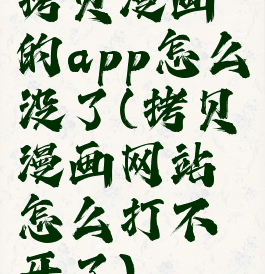 拷贝漫画
的app怎么
没了(拷贝
漫画网站
怎么打不
开了)